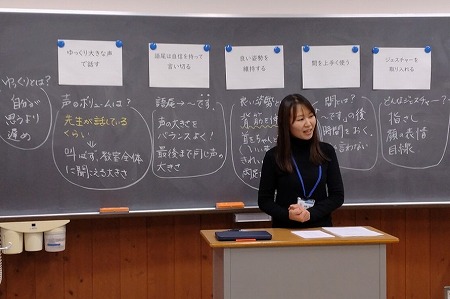 ゆっくり大きな声
で話す
語尾は自信を持って
言い切る
良い姿勢を
維持する
間を上手く使う
ジェスチャーを
取り入れる
ゆっくりとは?
自分が
思うより
遅め
声のボリュームは?
先生が話している
くらい
叫ばず、教室全体
に聞こえる大きさ
語尾→~です。
声の大きさを
バランスよく、
最後まで同じ声の
大きさ
良い姿勢と
背筋を
間は?
です。」の後
時間をおく、
言わない
どんなジェスチャー?
指さし
顔の表情
目線